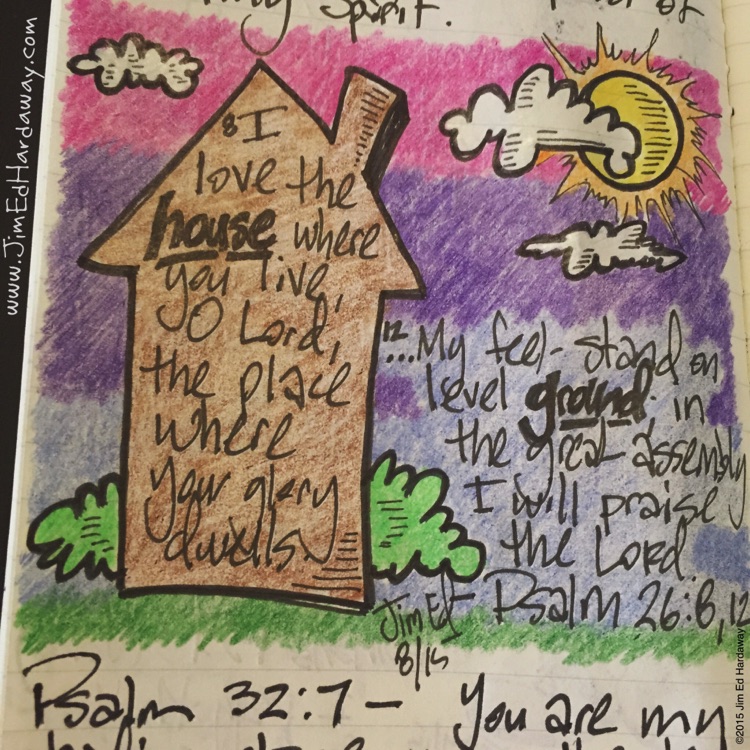 Spirit.
of
www.JimEdHardaway.com
8 I
love the
house where
you live,
O Lord,
the place
where
your glory
dwells.
12 ...My feet stand on
level ground; in
the great assembly
I will praise
the Lord.
Psalm 26:8,12
Jim Ed
8/15
©2015 Jim Ed Hardaway
Psalm 32:7 – You are my